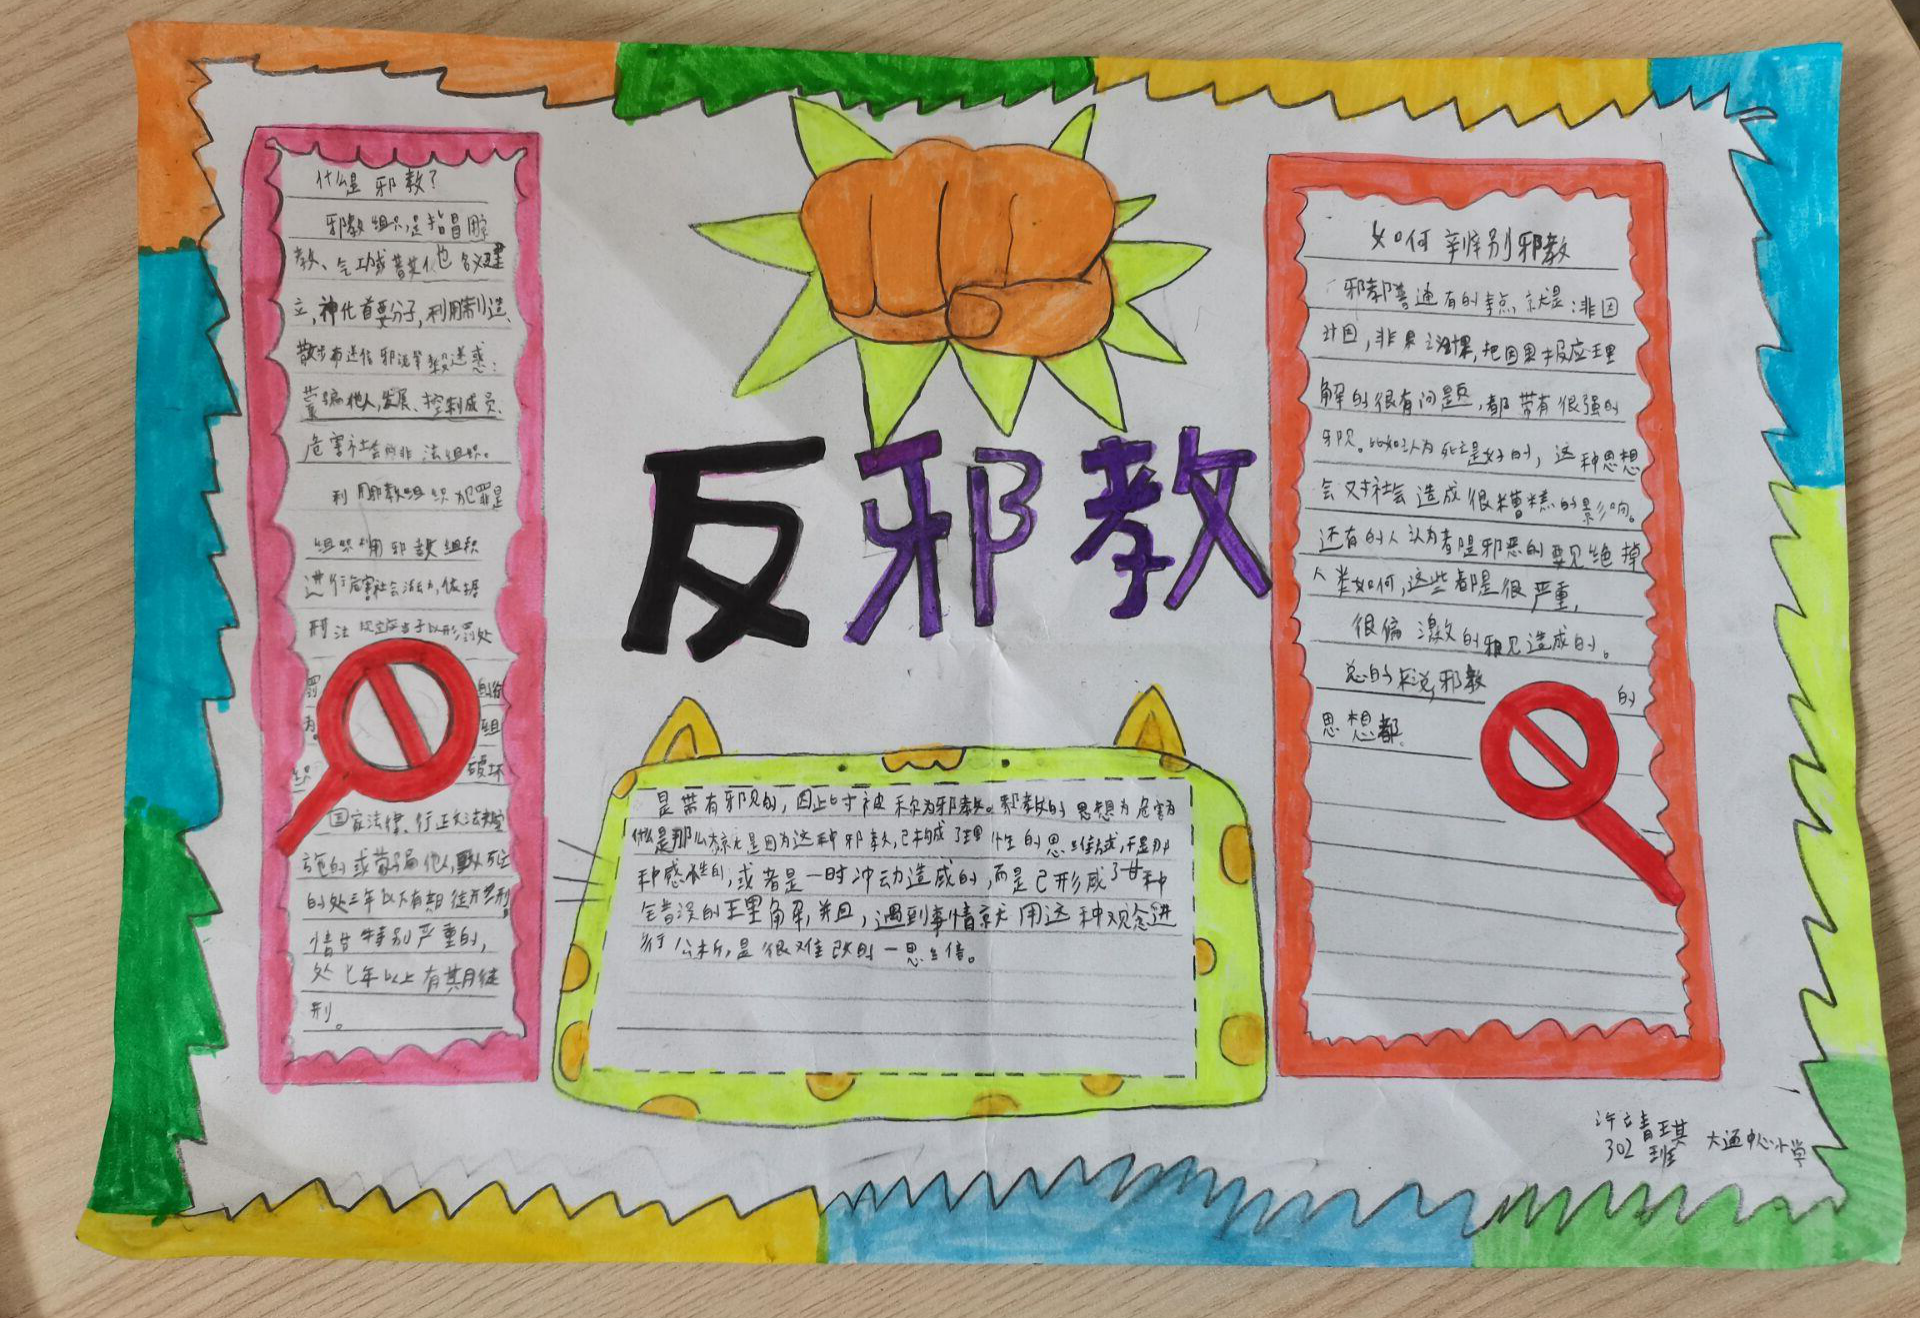 反邪教
什么是邪教?
邪教组织是指冒用宗
教、气功或者其他名义建
立,神化首要分子,利用制造、
散布迷信邪说等手段迷惑:
蒙骗他人,发展、控制成员、
危害社会的非法组织。
利用邪教组织犯罪是
组织利用邪教组织
进行危害社会活动,依据
刑法规定应当予以刑罚处
罚
为。 组
织 破坏
国家法律、行政法规实
施的或蒙骗他人,致人死亡
的处三年以下有期徒刑。
情节特别严重的,
处七年以上有期徒
刑。
是带有邪见的,因此才被称为邪教。邪教的思想为危害为
什么是那么大就是因为这种邪教,已构成了理性的思维模式,于是那
种感性的,或者是一时冲动造成的,而是已形成了某种
错误的理解,并且,遇到事情就用这种观念进
行分析,是很难改的一思维。
如何辨别邪教
邪教普遍有的特点,就是:非因
计因,非果计果,把因果报应理
解的很有问题,都带有很强的
邪见。比如认为死亡是好的,这种思想
会对社会造成很糟糕的影响。
还有的人认为都是邪恶的要灭绝掉
人类如何,这些都是很严重,
很偏激的邪见造成的。
总的来说,邪教 的
思想都
许立青琪
302班 大通中心小学